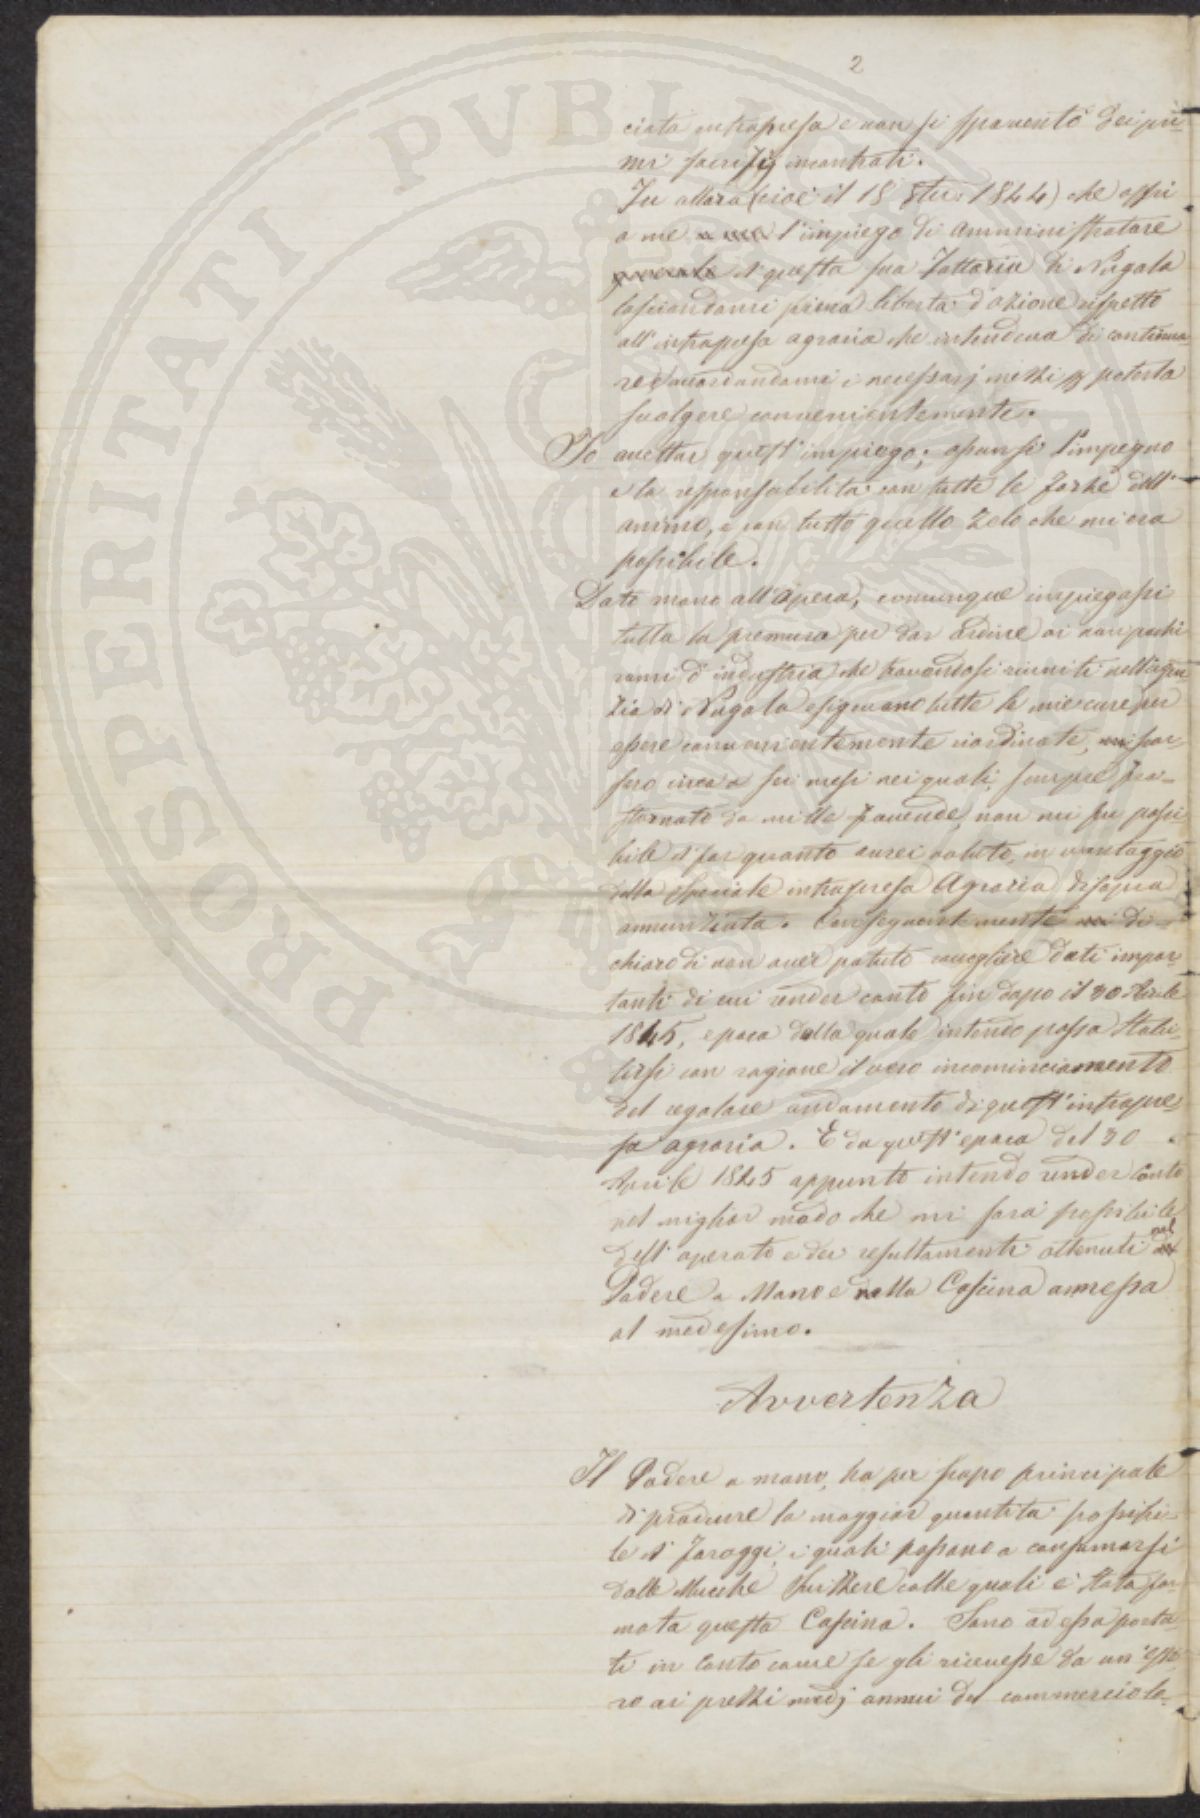 2
ciata intrapresa e non si spaventò dei pri-
mi sacrifizj incontrati.
Fu allora (cioè il 18 8bre 1844) che offrì
a me l'impiego di Amministratore
di questa sua Fattoria di Nugola
lasciandomi piena libertà d'azione rispetto
all'intrapresa agraria che intendeva di continua-
re ed accordandomi i necessarj mezzi p poterla
svolgere convenientemente.
Io accettai quest'impiego; assunsi l'impegno
e la responsabilità con tutte le forze dell'
animo, e con tutto quello zelo che mi era
possibile.
Dato mano all'opera, comunque impiegassi
tutta la premura per dar ordine ai non pochi
rami d'industria che trovandosi riuniti nell'agen
zia di Nugola esigevano tutte le mie cure per
essere convenientemente riordinate, scor-
sero circa a sei mesi nei quali, sempre fra-
stornato da mille faccende, non mi fu possi
bile di far quanto avrei voluto, in vantaggio
della speciale intrapresa Agraria disopra
annunziata. Conseguentemente di-
chiaro di non aver potuto raccogliere dati impor-
tanti di cui render conto fin dopo il 30 Aprile
1845, epoca dalla quale intendo possa stabi-
lirsi con ragione il vero incominciamento
del regolare andamento di quest'intrapre-
sa agraria. E da quest'epoca del 30
Aprile 1845 appunto intendo render conto
nel miglior modo che mi sarà possibile
dell'operato e dei resultamenti ottenuti nel
Podere a Mano e nella Cascina annessa
al medesimo.
Avvertenza
Il Podere a mano, ha per scopo principale
di produrre la maggior quantità possibi-
le di foraggi, i quali passano a consumarsi
dalle Mucche Svizzere colle quali è stata for-
mata questa Cascina. Sono ad essa porta-
ti in conto come se gli ricevesse da un'este-
ro ai prezzi medj annui del commercio lo-